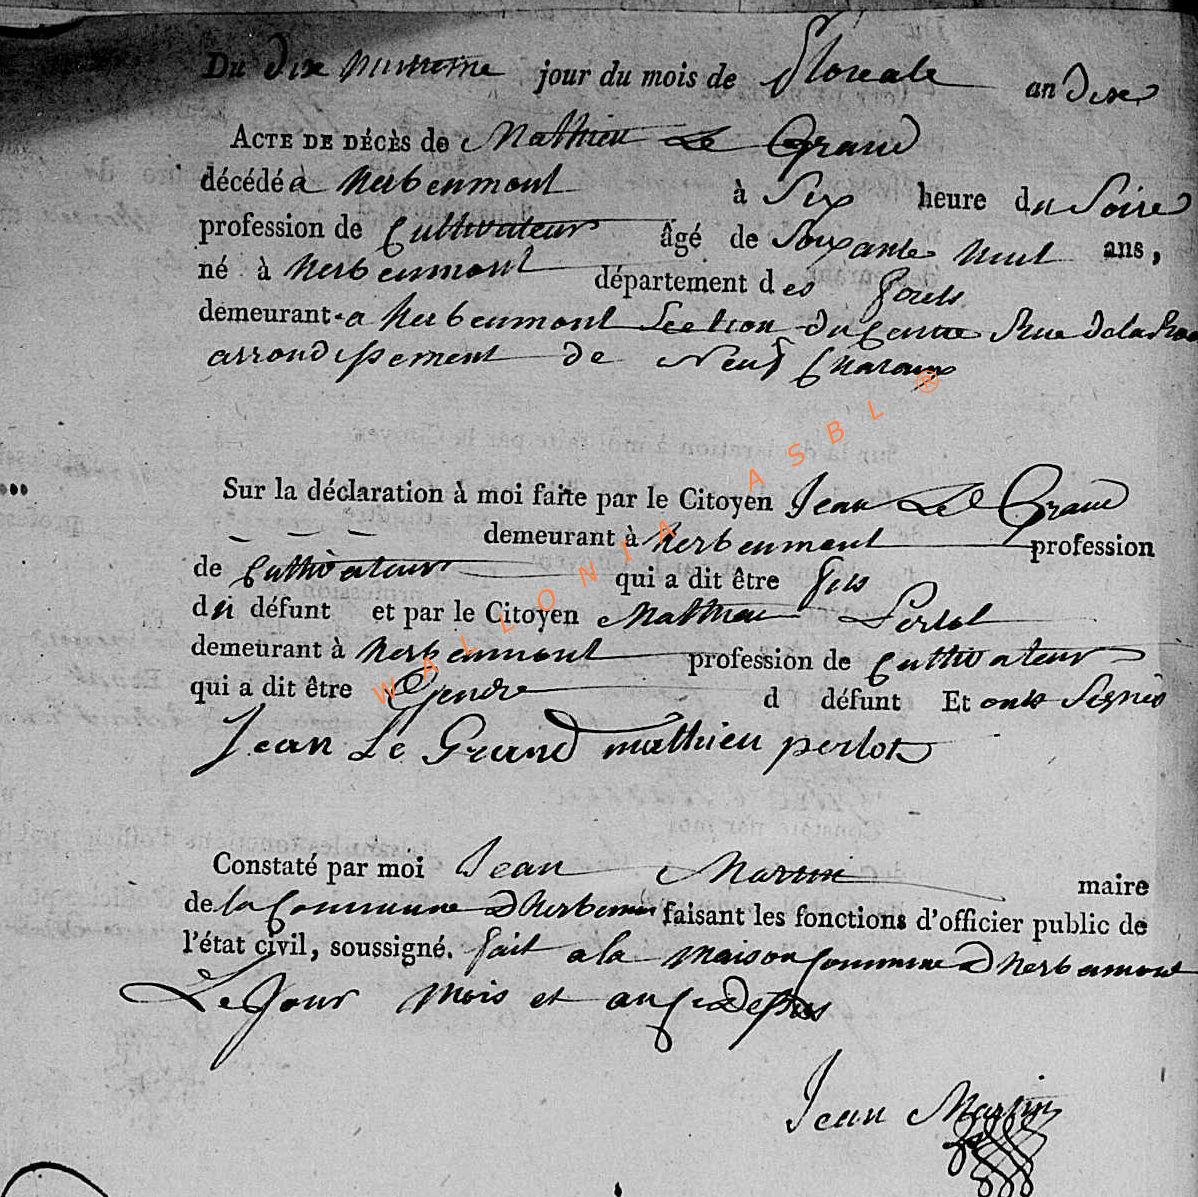 Du dix huitieme jour du mois de floreale an dixe
ACTE DE DÉCÈS de Mathieu Le Grand
décédé a herbeumont à Six heure du Soire
profession de Cultivateur âgé de Soixante neuf ans,
né à herbeumont département des forets
demeurant a herbeumont Section du Centre Rue de la
arrondissement de Neuf Chataux
Sur la déclaration à moi faite par le Citoyen Jean Le Grand
demeurant à herbeumont profession
de Cultivateur qui a dit être fils
du défunt et par le Citoyen Mathieu Perlot
demeurant à herbeumont profession de Cultivateur
qui a dit être Gendre d défunt Et onts Signés
Jean Le Grand mathieu perlot
Constaté par moi Jean Martin maire
de la Commune d herbeumont faisant les fonctions d'officier public de
l'état civil, soussigné. fait a la maison Commune d herbeumont
Le Jour mois et an
Jean Martin
WALLONIA ASBL ®